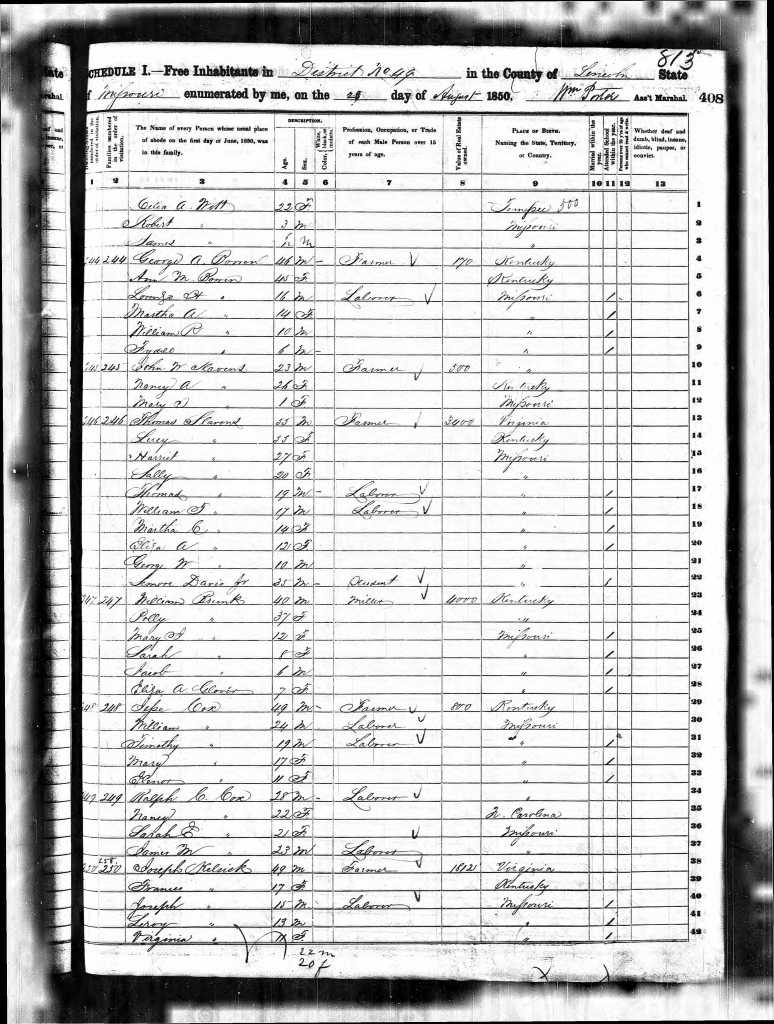 813
SCHEDULE I.—Free Inhabitants in District No 49 in the County of Lincoln State
of Missouri enumerated by me, on the 29 day of August 1850. Wm Porter Ass't Marshal. 408
Families numbered in the order of visitation.
The Name of every Person whose usual place of abode on the first day of June, 1850, was in this family.
DESCRIPTION.
Age. Sex. White, black, or mulatto. Color,
Profession, Occupation, or Trade of each Male Person over 15 years of age.
Value of Real Estate owned.
PLACE OF BIRTH. Naming the State, Territory, or Country.
Married within the year.
Attended School within the year.
Whether deaf and dumb, blind, insane, idiotic, pauper, or convict.
1 2 3 4 5 6 7 8 9 10 11 12 13
Celia A. 22 F 500 1
Robert " 3 M Missouri 2
James " M " 3
244 244 George A Bowen 46 M - Farmer 170 Kentucky 4
Ann M. Bowen 45 F Kentucky 5
Lorenzo H " 16 M Laborer Missouri / 6
Martha A " 14 F " / 7
William R " 10 M " / 8
" 6 M - " / 9
245 245 John W Stavens 23 M Farmer 500 " 10
Nancy A " 26 F Kentucky 11
Mary " 1 F Missouri 12
246 246 Thomas Stavens 55 M Farmer 3400 Virginia 13
Lucy " 55 F Kentucky 14
Harriet " 27 F Missouri 15
Sally " 20 F " 16
Thomas " 19 M - Laborer " / 17
William F " 17 M Laborer " / 18
Martha C " 14 F " / 19
Eliza A " 12 F " / 20
George W " 10 M " 21
Davis Jr 25 M - Student " / 22
247 247 William Brunk 40 M Miller 4000 Kentucky 23
Polly " 37 F " 24
Mary " 12 F Missouri / 25
Sarah " 8 F " / 26
Jacob " 6 M " / 27
Eliza A Glover 7 F " / 28
248 248 Jesse Cox 49 M - Farmer 800 Kentucky 29
William " 24 M Laborer Missouri 30
Timothy " 19 M Laborer " / 31
Mary " 17 F " / 32
Elenor " 11 F " / 33
249 249 Ralph C. Cox 28 M - Laborer " 34
Nancy " 22 F N. Carolina 35
Sarah E " 21 F Missouri 36
James M " 23 M Laborer " 37
250 250 Joseph 49 M Farmer Virginia 38
Frances " 17 F Kentucky 39
Joseph " 15 M Laborer Missouri / 40
Leroy " 13 M " / 41
Virginia " 11 F " / 42
22 m
20 f